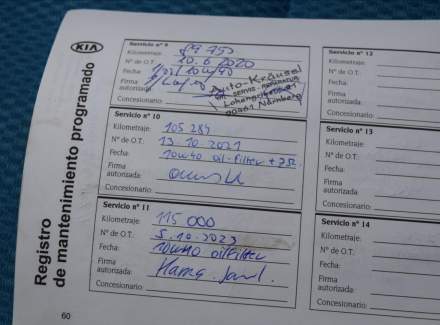 KIA
Registro
de mantenimiento programado
Servicio nº 9
Kilometraje:
Nº de O.T.
20.6 2020
Fecha:
10w40
Firma
autorizada:
Concesionario:
Auto-Krausel
90461 Nürnberg
Servicio nº 10
Kilometraje: 105 284
Nº de O.T. 13 10 2021
Fecha: 10w40 oil-filter +
Firma
autorizada:
Concesionario:
Servicio nº 11
Kilometraje: 115 000
Nº de O.T. 5.10.2023
Fecha: 10w40 oilfilter
Firma
autorizada:
Concesionario:
Servicio nº 12
Kilometraje:
Nº de O.T.
Fecha:
Firma
autorizada:
Concesionario:
Servicio nº 13
Kilometraje:
Nº de O.T.
Fecha:
Firma
autorizada:
Concesionario:
Servicio nº 14
Kilometraje:
Nº de O.T.
Fecha:
Firma
autorizada:
Concesionario:
60